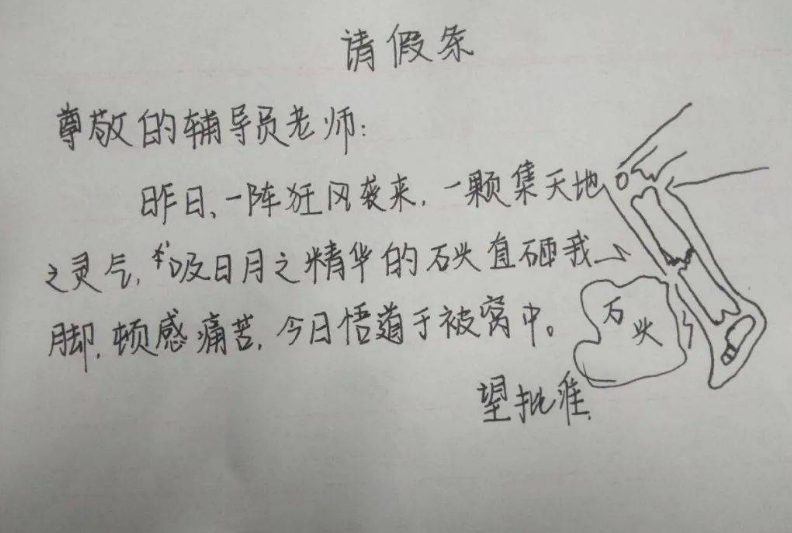 请假条
尊敬的辅导员老师:
昨日、一阵狂风袭来,一颗集天地
之灵气,吸日月之精华的石头直砸我
脚,顿感痛苦,今日悟道于被窝中。
石头
望批准.